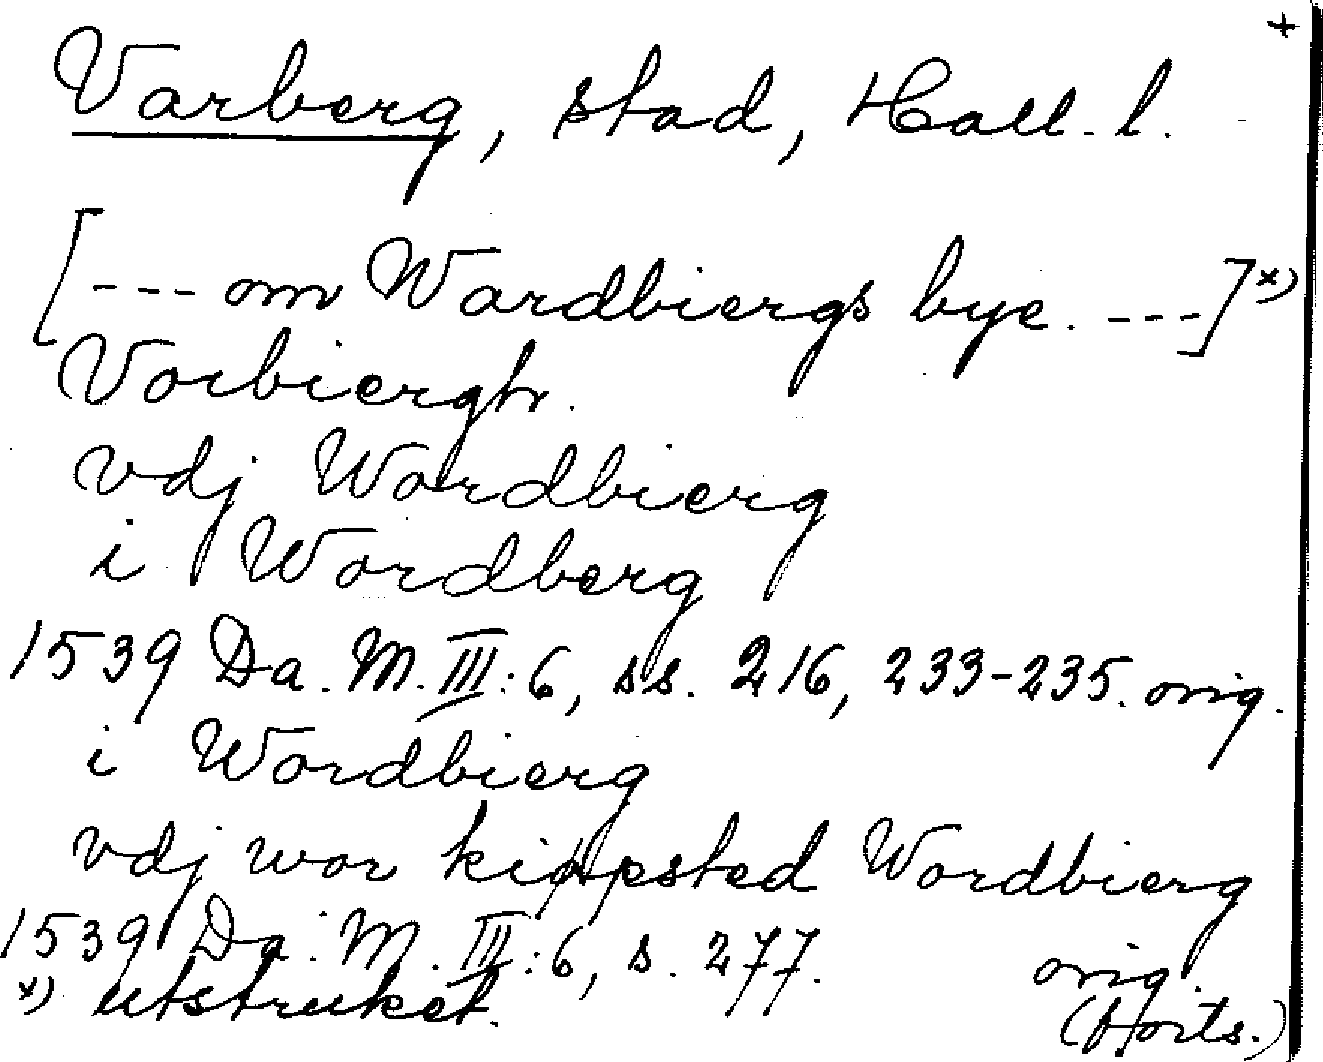 +
Varberg, stad, Hall. l.
[--- om Wardbiergs bye. ---]x)
Vorbierghr.
vdj Wordbierg
i Wordberg
1539 Da. M. III:6, ss. 216, 233-235. orig.
i Wordbierg
vdj wor kippsted Wordbierg
1539 Da. M. III:6, s. 277. orig.
x) utstruket. (Forts.)